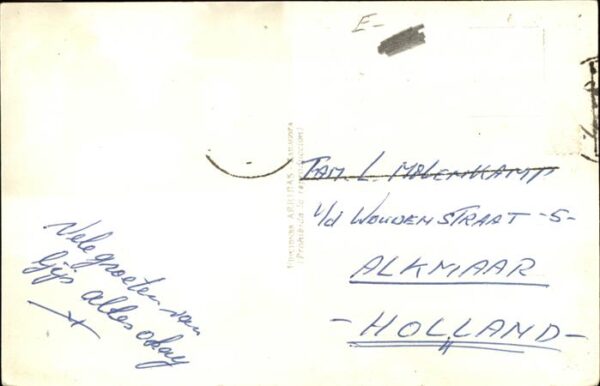 E-
Vele groeten van
Gijs alles okay
Fam. L. Molenkamp
v/d Woudenstraat -5-
ALKMAAR
- HOLLAND -
ARRIBAS